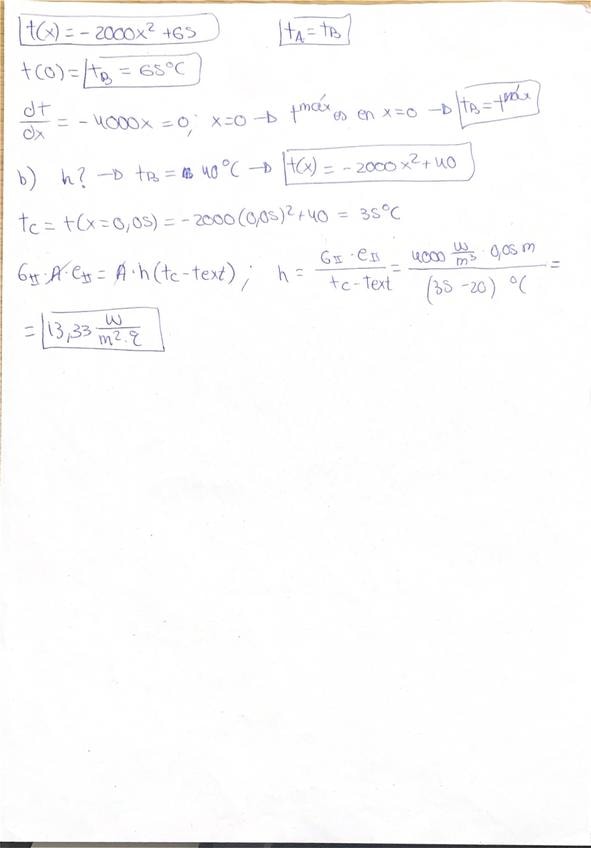 t(x) = -2000x² + 65 tA = tB
t(0) = tB = 65°C
dt/dx = -4000x = 0; x=0 → t^máx es en x=0 → tB = t^máx
b) h? → tB = 40°C → t(x) = -2000x² + 40
tC = t(x=0,05) = -2000(0,05)² + 40 = 35°C
GII · A · eII = A · h (tC - text); h = GII · eII / tC - text = 4000 W/m³ · 0,05 m / (35 - 20) °C =
= 13,33 W/m²·